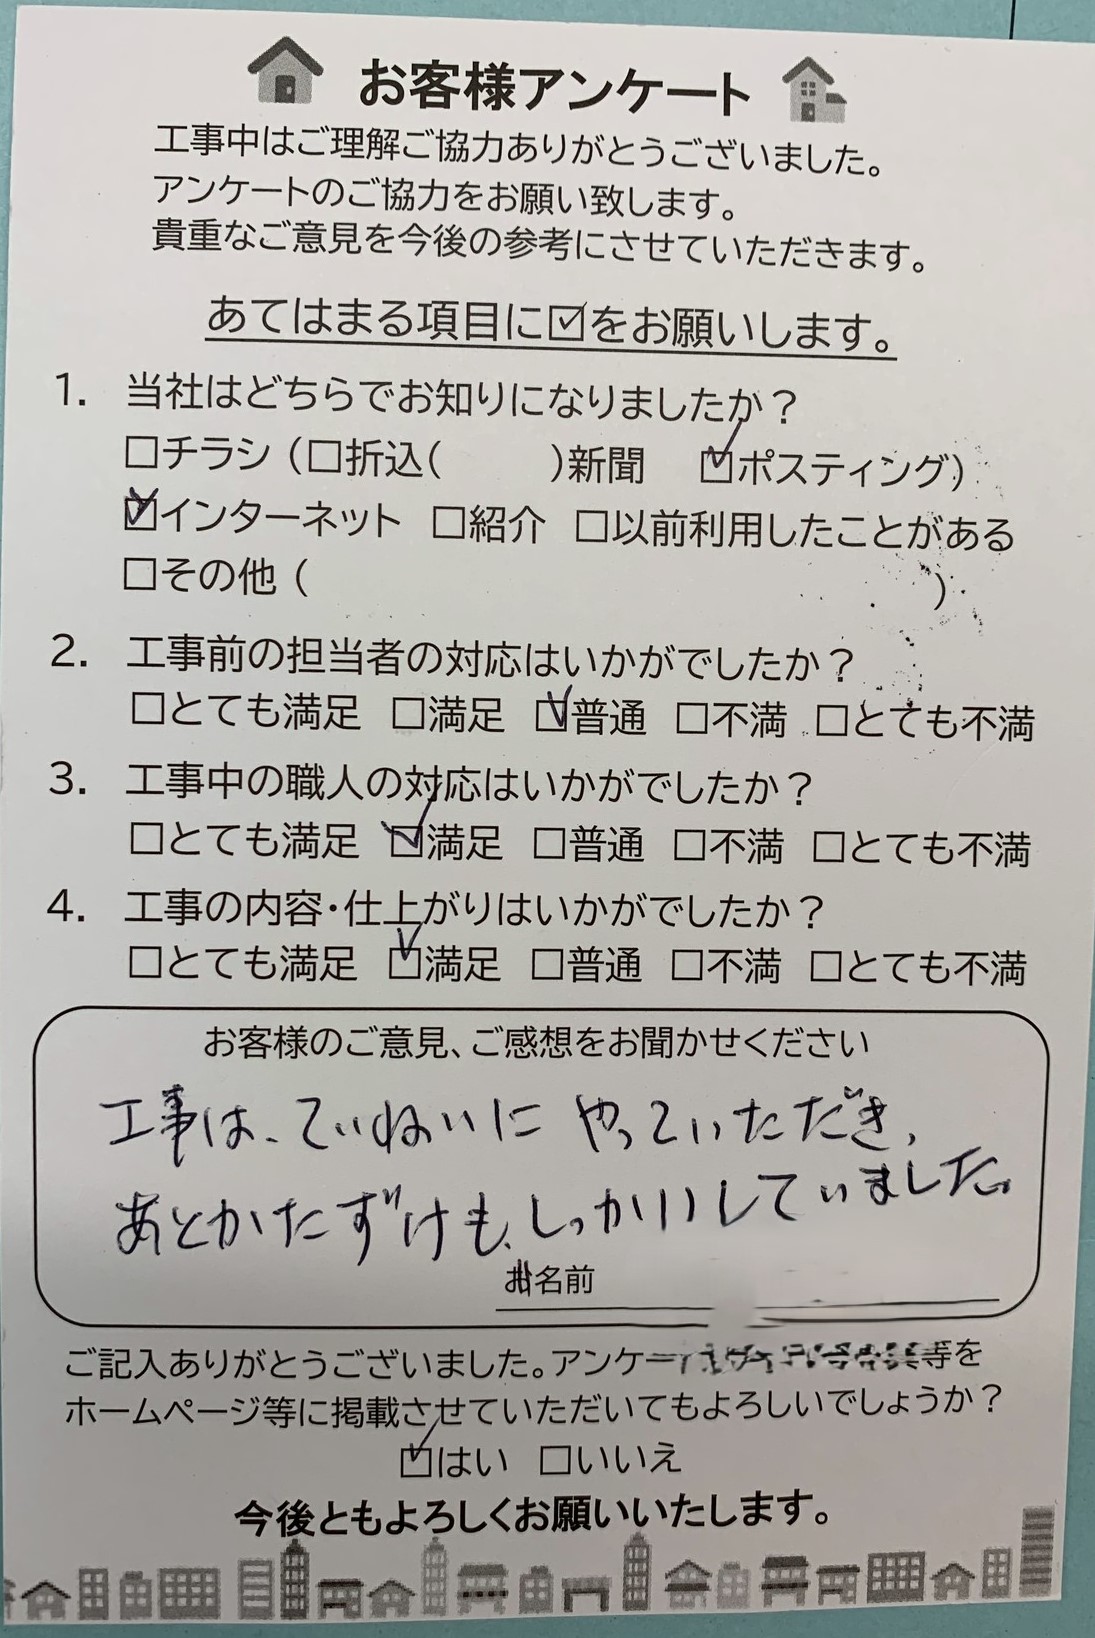 お客様アンケート
工事中はご理解ご協力ありがとうございました。
アンケートのご協力をお願い致します。
貴重なご意見を今後の参考にさせていただきます。
あてはまる項目に☑をお願いします。
1. 当社はどちらでお知りになりましたか？
□チラシ（□折込(　　　)新聞　☑ポスティング）
☑インターネット □紹介 □以前利用したことがある
□その他（　　　　　　　　　　）
2. 工事前の担当者の対応はいかがでしたか？
□とても満足 □満足 ☑普通 □不満 □とても不満
3. 工事中の職人の対応はいかがでしたか？
□とても満足 ☑満足 □普通 □不満 □とても不満
4. 工事の内容・仕上がりはいかがでしたか？
□とても満足 ☑満足 □普通 □不満 □とても不満
お客様のご意見、ご感想をお聞かせください
工事は、ていねいに やっていただき、
あとかたずけも、しっかりしていました。
お名前
ご記入ありがとうございました。アンケー 等を
ホームページ等に掲載させていただいてもよろしいでしょうか？
☑はい □いいえ
今後ともよろしくお願いいたします。